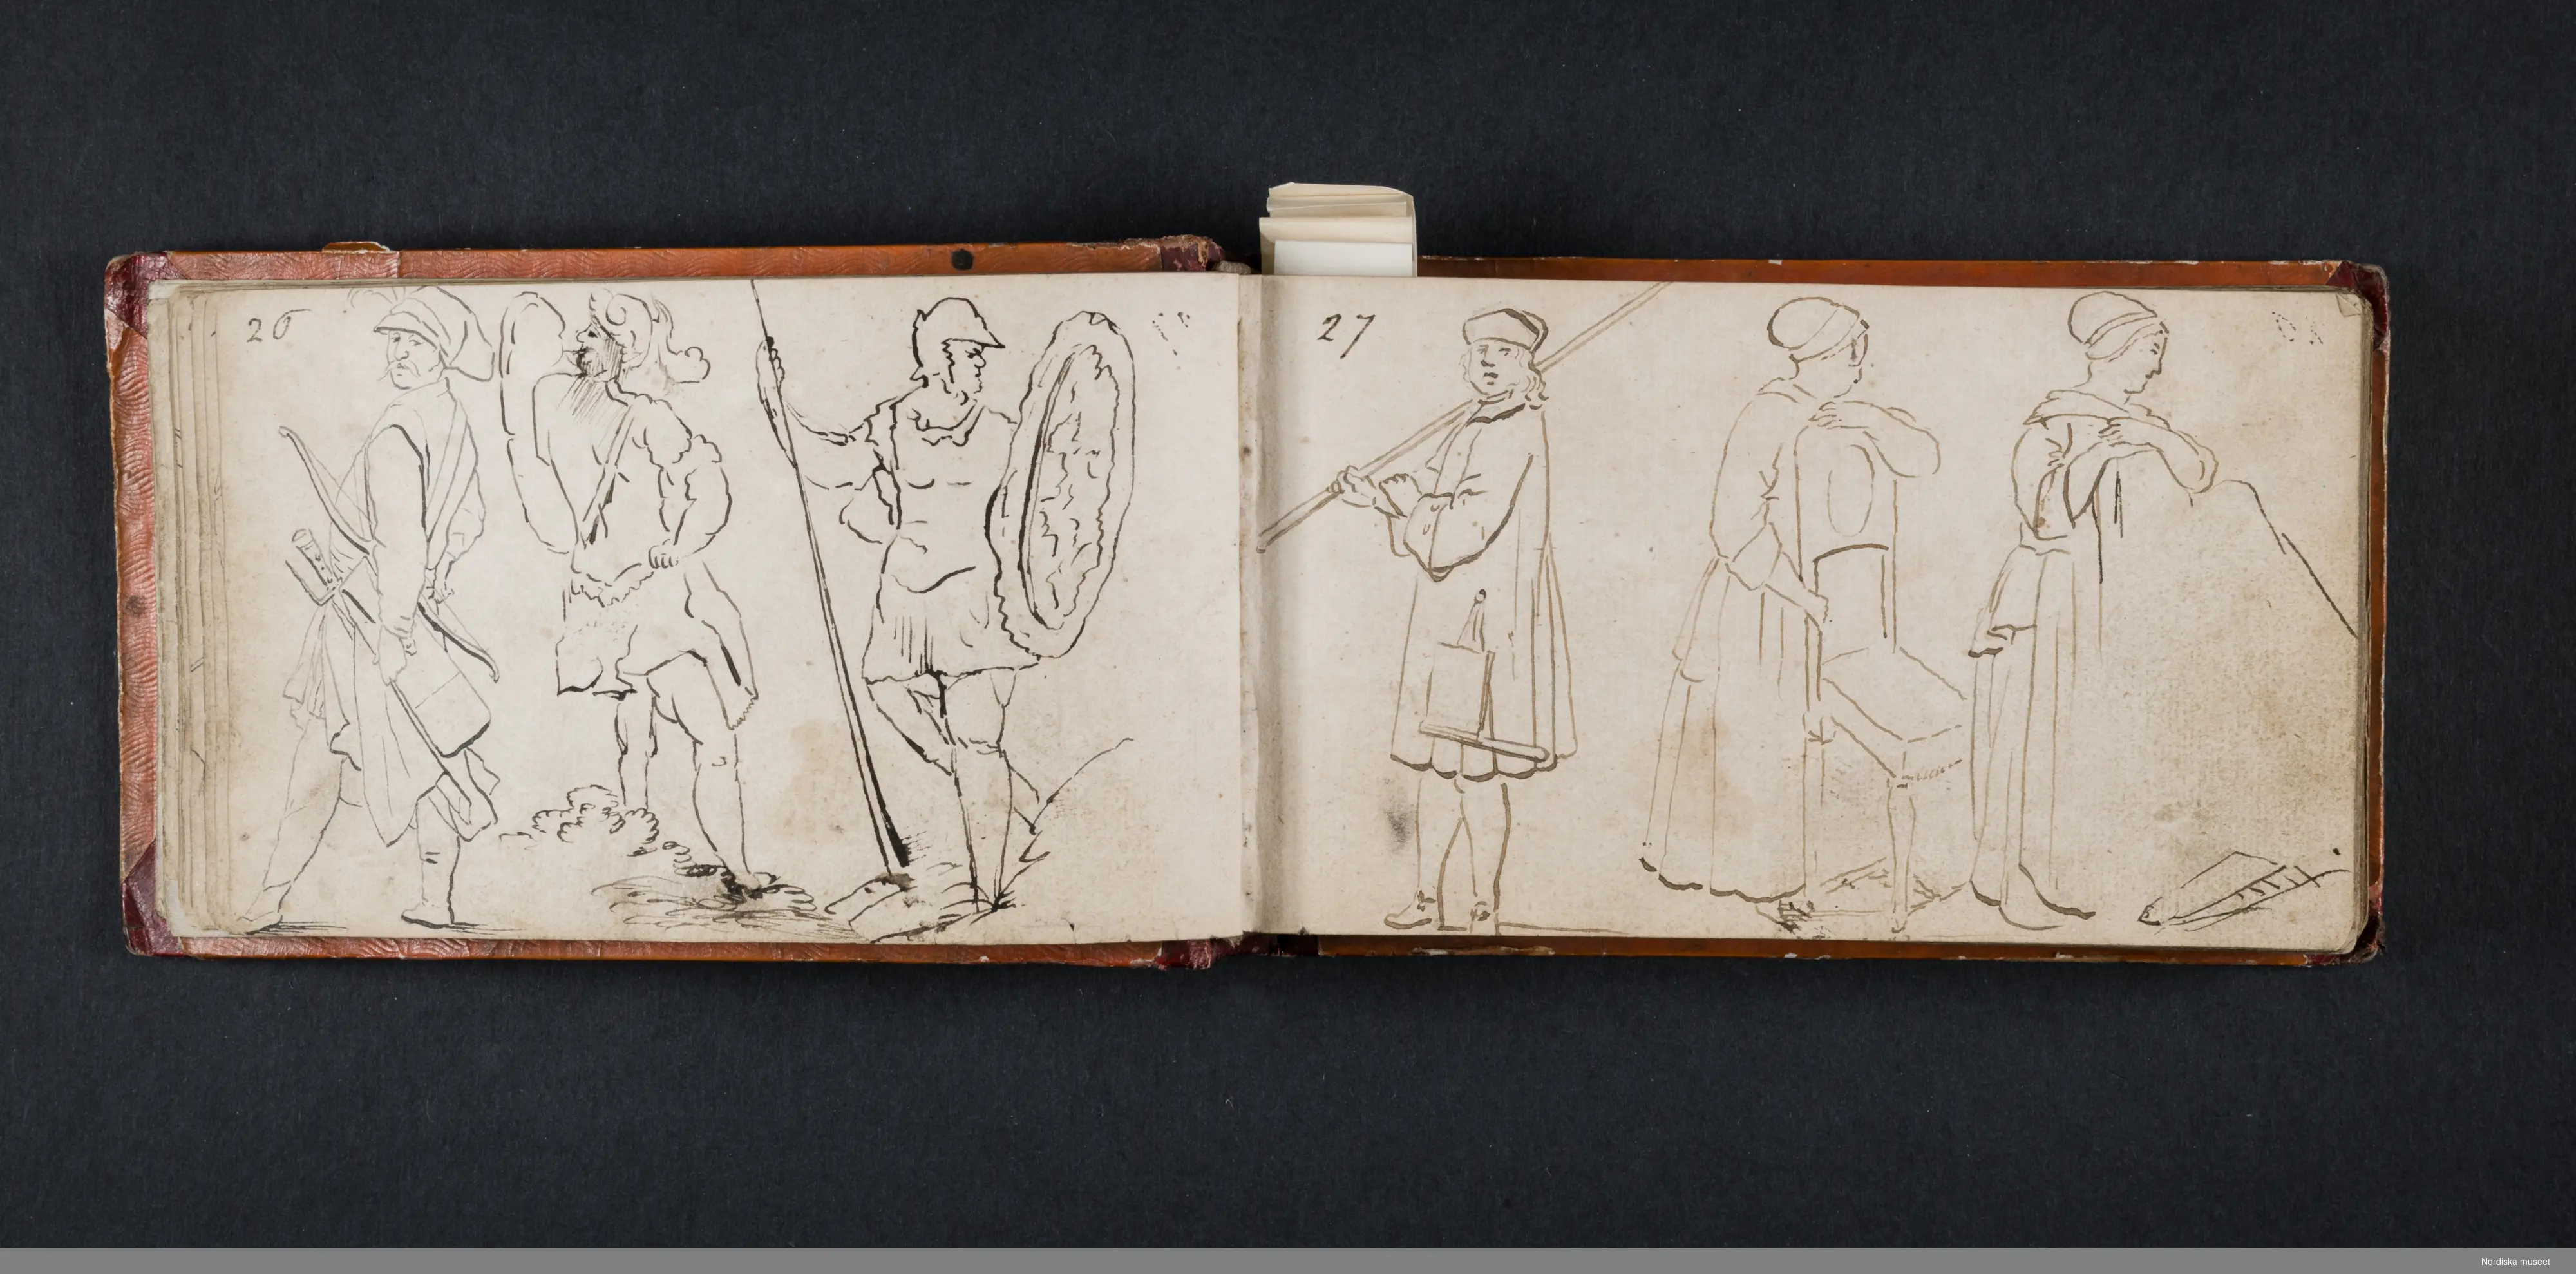 26
27
Nordiska museet